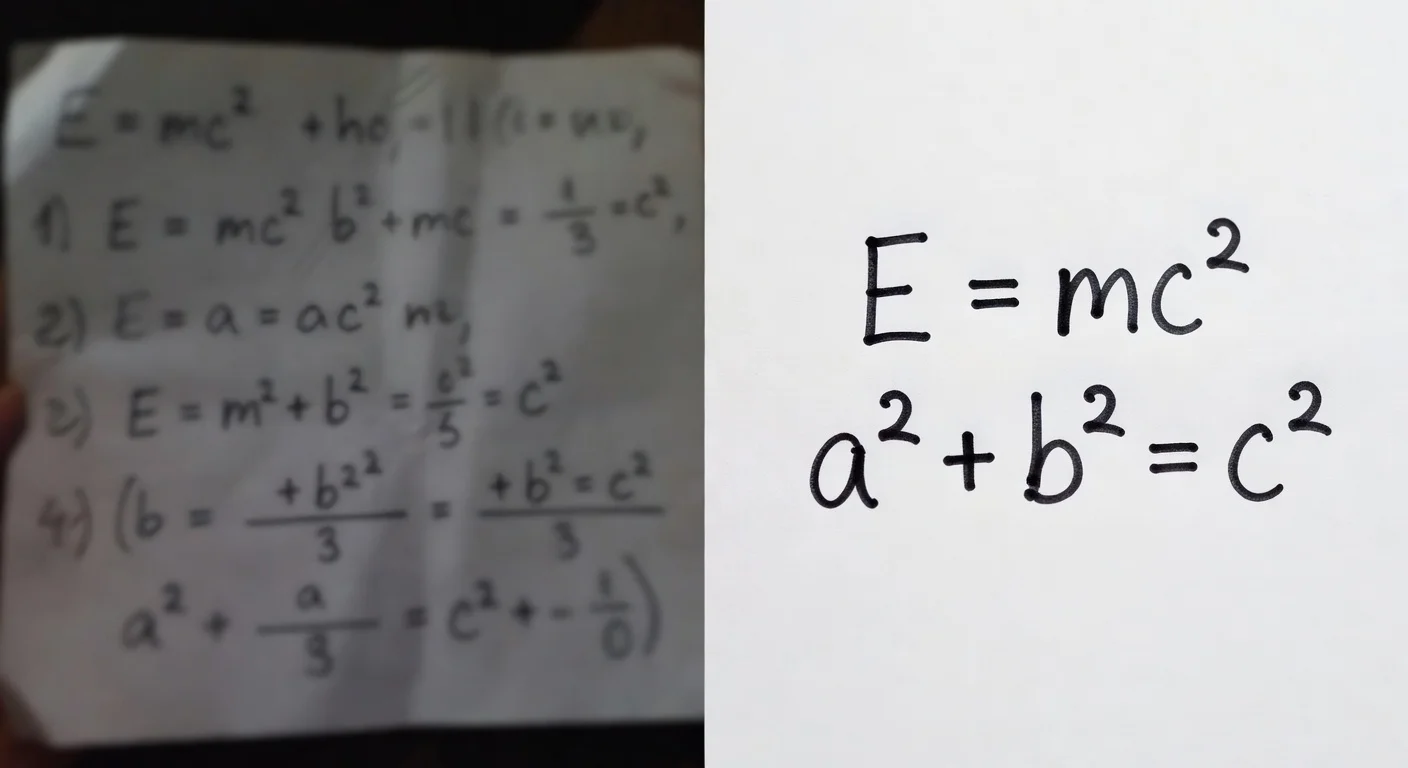 E = mc²
1) E = mc² b² + mc = 1/3 = c²,
2) E = a = ac²
E = m² + b² = /5 = c²
4) (b = +b²²/3 = +b² = c²/3
a² + a/3 = c² + - 1/0)
E = mc²
a² + b² = c²